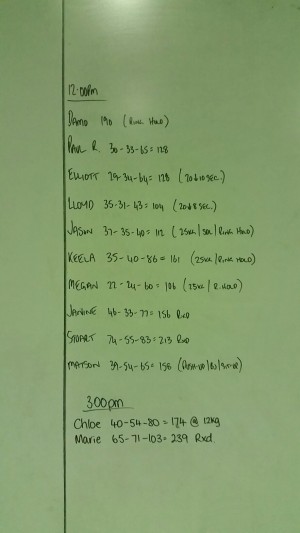 12:00pm
DAMO 190 (RING HOLD)
PAUL R. 30-33-65=128
ELLIOTT 29-34-64=128 (20↓10 SEC.)
LLOYD 35-31-43=104 (20↓8 SEC.)
JASON 37-35-40=112 (25KG/30/RING HOLD)
KEELA 35-40-86=161 (25KG/RING HOLD)
MEGAN 22-24-60=106 (25KG/R. HOLD)
JANINE 46-33-77=156 RXD
STUART 74-55-83=213 RXD
MATSON 39-54-65=158
3:00pm
Chloe 40-54-80=174 @ 12kg
Marie 65-71-103=239 Rxd